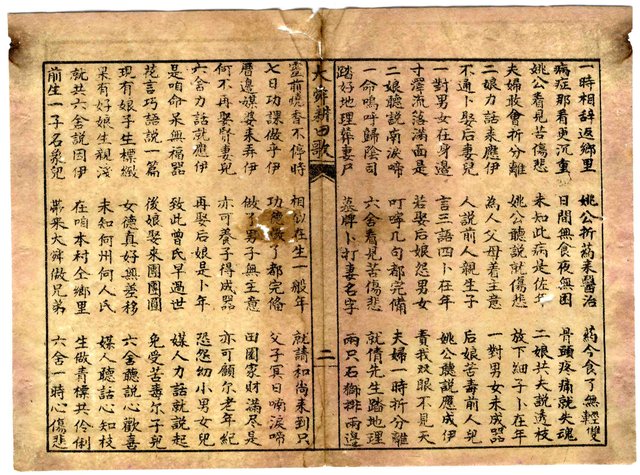 一時相辭返鄉里 姚公折葯來醫治 葯今食了無輕雙
病症那看更沉重 日間無食夜無困 骨頭疼痛就失魂
姚公看見苦傷悲 未知此病是佐 二娘共夫說透枝
夫婦敢會折分離 姚公聽說就傷悲 放下細子卜在年
二娘力話來應伊 為人父母着主意 一對男女未成器
不通卜娶后妻兒 人說前人親生子 后娘苦毒前人兒
一對男女在身邊 言三語四卜在年 姚公聽說應成伊
寸澤流落滿面是 若娶后娘怨男女 責我双眼不見天
二娘聽說南淚啼 叮嚀几句都完備 夫婦一時折分離
一命嗚呼歸陰司 六舍看見苦傷悲 就倩先生踏地理
踏好地理葬妻尸 墓牌卜打妻名字 兩只石獅排兩邊
大舜耕田歌 二
靈前燒香不停時 相似在生一般年 就請和尚來到只
七日功課做乎伊 功德做了都完俻 父子冥日喃淚啼
曆邊媒婆來弄伊 做了男子無主意 田園家財滿尽是
何不再娶賢妻兒 亦可養子得成器 亦可顧尔老年紀
六舍力話就應伊 再娶后娘是卜年 恐怨幼小男女兒
是咱命呆無福器 致此曾氏早過世 媒人力話就說起
花言巧語說一篇 後娘娶來團團圓 免受苦毒尔子兒
現有娘子生標緻 女德真好無差移 六舍聽說心歡喜
果有好娘生親淺 未知何州何人氏 媒人聽話心知枝
就共六舍說因伊 在咱本村仝鄉里 生做青標共伶俐
前生一子石象兒 帶來大舜做兄弟 六舍一時心傷悲